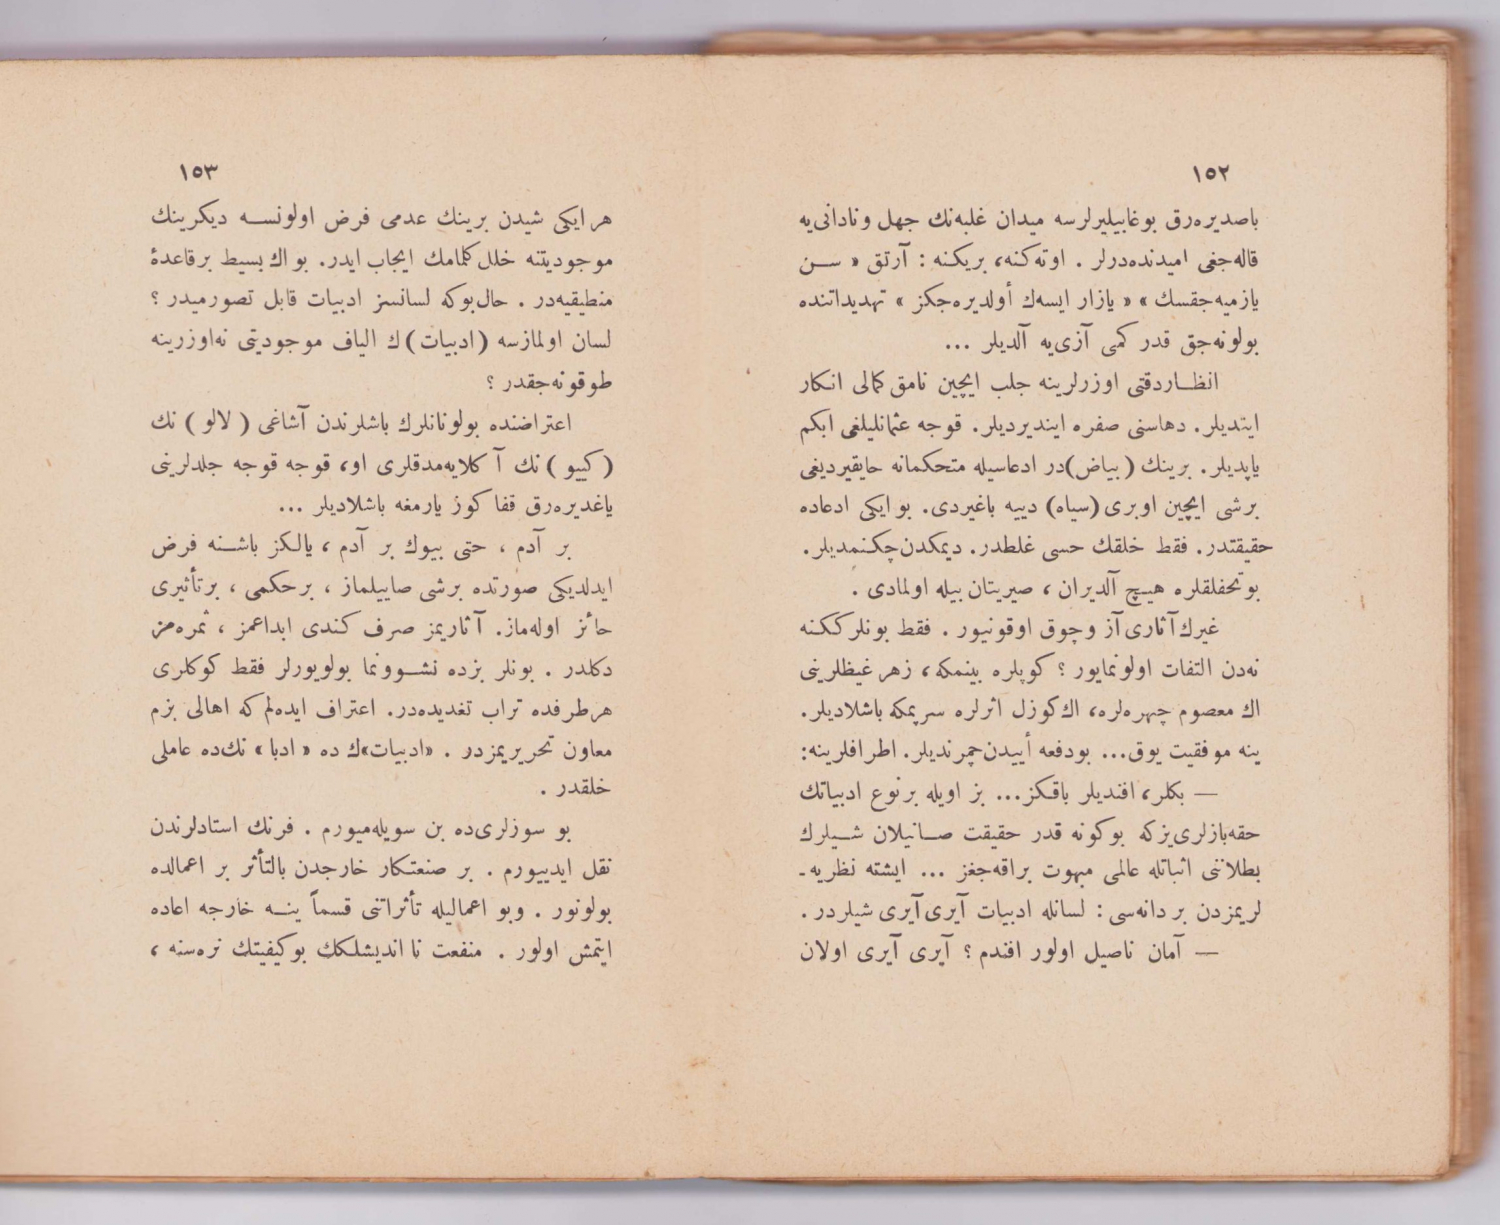 ١٥٢
باصديره‌رق بوغابيليرلرسه ميدان غلبه‌نك جهل ونادانى‌يه
قاله‌جغى اميدنده‌درلر . اوته‌كنه، بريكنه : آرتق « ســن
يازميه‌جقسك » « يازار ايسه‌ك أولديره‌جكز » تهديداتنده
بولونه‌جق قدر كمى آزى‌يه آلديلر ...
انظــاردقتى اوزرلرينه جلب ايچين نامق كمالى انكار
ايتديلر. دهاسنى صفره اينديرديلر. قوجه عثمانليلغى ابكم
ياپديلر. برينك (بياض)در ادعاسيله متحكمانه حايقيرديغى
برشى ايچين اوبرى (سياه) دييه باغيردى. بو ايكى ادعاده
حقيقتدر. فقط خلقك حسى غلطدر. ديمكدن چكنمديلر.
بوتحفلقلره هيــچ آلديران ، صيريتان بيله اولمادى .
غيرك آثارى آز وچوق اوقونيور . فقط بونلركـكنه
نه‌دن التفات اولونمايور ؟ كوپلره بينمكه، زهر غيظلرينى
اك معصوم چهره‌لره، اك كوزل اثرلره سرپمكه باشلاديلر.
ينه موفقيت يوق... بودفعه أييدن حمرنديلر. اطرافلرينه:
— بكلر، افنديلر باقـكز... بز اويله برنوع ادبياتك
حقه‌بازلرى‌يزكه بوكونه قدر حقيقت صــانيلان شــيلرك
بطلاننى اثباتله عالمى مبهوت براقه‌جغز ... ايشته نظريه-
لريمزدن بر دانه‌سى : لسانله ادبيات آيرى آيرى شيلردر .
— آمان ناصيل اولور افندم ؟ آيرى آيرى اولان
١٥٣
هرايكى شيدن برينك عدمى فرض اولونســه ديكرينك
موجوديتنه خلل كلمامك ايجاب ايدر. بواك بسيط برقاعدۀ
منطيقيه‌در . حال‌بوكه لسانسز ادبيات قابل تصورميدر ؟
لسان اولمازسه (ادبيات)ك الياف موجوديتى نه‌اوزرينه
طوقونه‌جقدر ؟
اعتراضنده بولونانلرك باشلرندن آشاغى ( لالو ) نك
(كييو) نك آكلايه‌مدقلرى او، قوجه قوجه جلدلرينى
ياغديره‌رق قفا كوز يارمغه باشلاديلر ...
بر آدم ، حتى بيوك بر آدم ، يالكز باشــنه فرض
ايدلديكى صورتده برشى صاييلماز ، برحكمى ، برتأثيرى
حائز اوله‌ماز. آثاريمز صرف كندى ابداعمز ، ثمره‌مز
دكلدر . بونلر بزده نشــوونما بولويورلر فقط كوكلرى
هرطرفده تراب تغديده‌در. اعتراف ايده‌لم كه اهالى بزم
معاون تحريريمزدر . «ادبيات»ك ده « ادبا » نك‌ده عاملى
خلقدر .
بو سوزلرى‌ده بن سويله‌ميورم . فرنك استادلرندن
نقل ايدييورم . بر صنعتكار خارجدن بالتأثر بر اعمالده
بولونور . وبو اعماليله تأثراتنى قسماً ينــه خارجه اعاده
ايتمش اولور . منفعت نا انديشلكك بوكيفيتك نره‌سنه ،